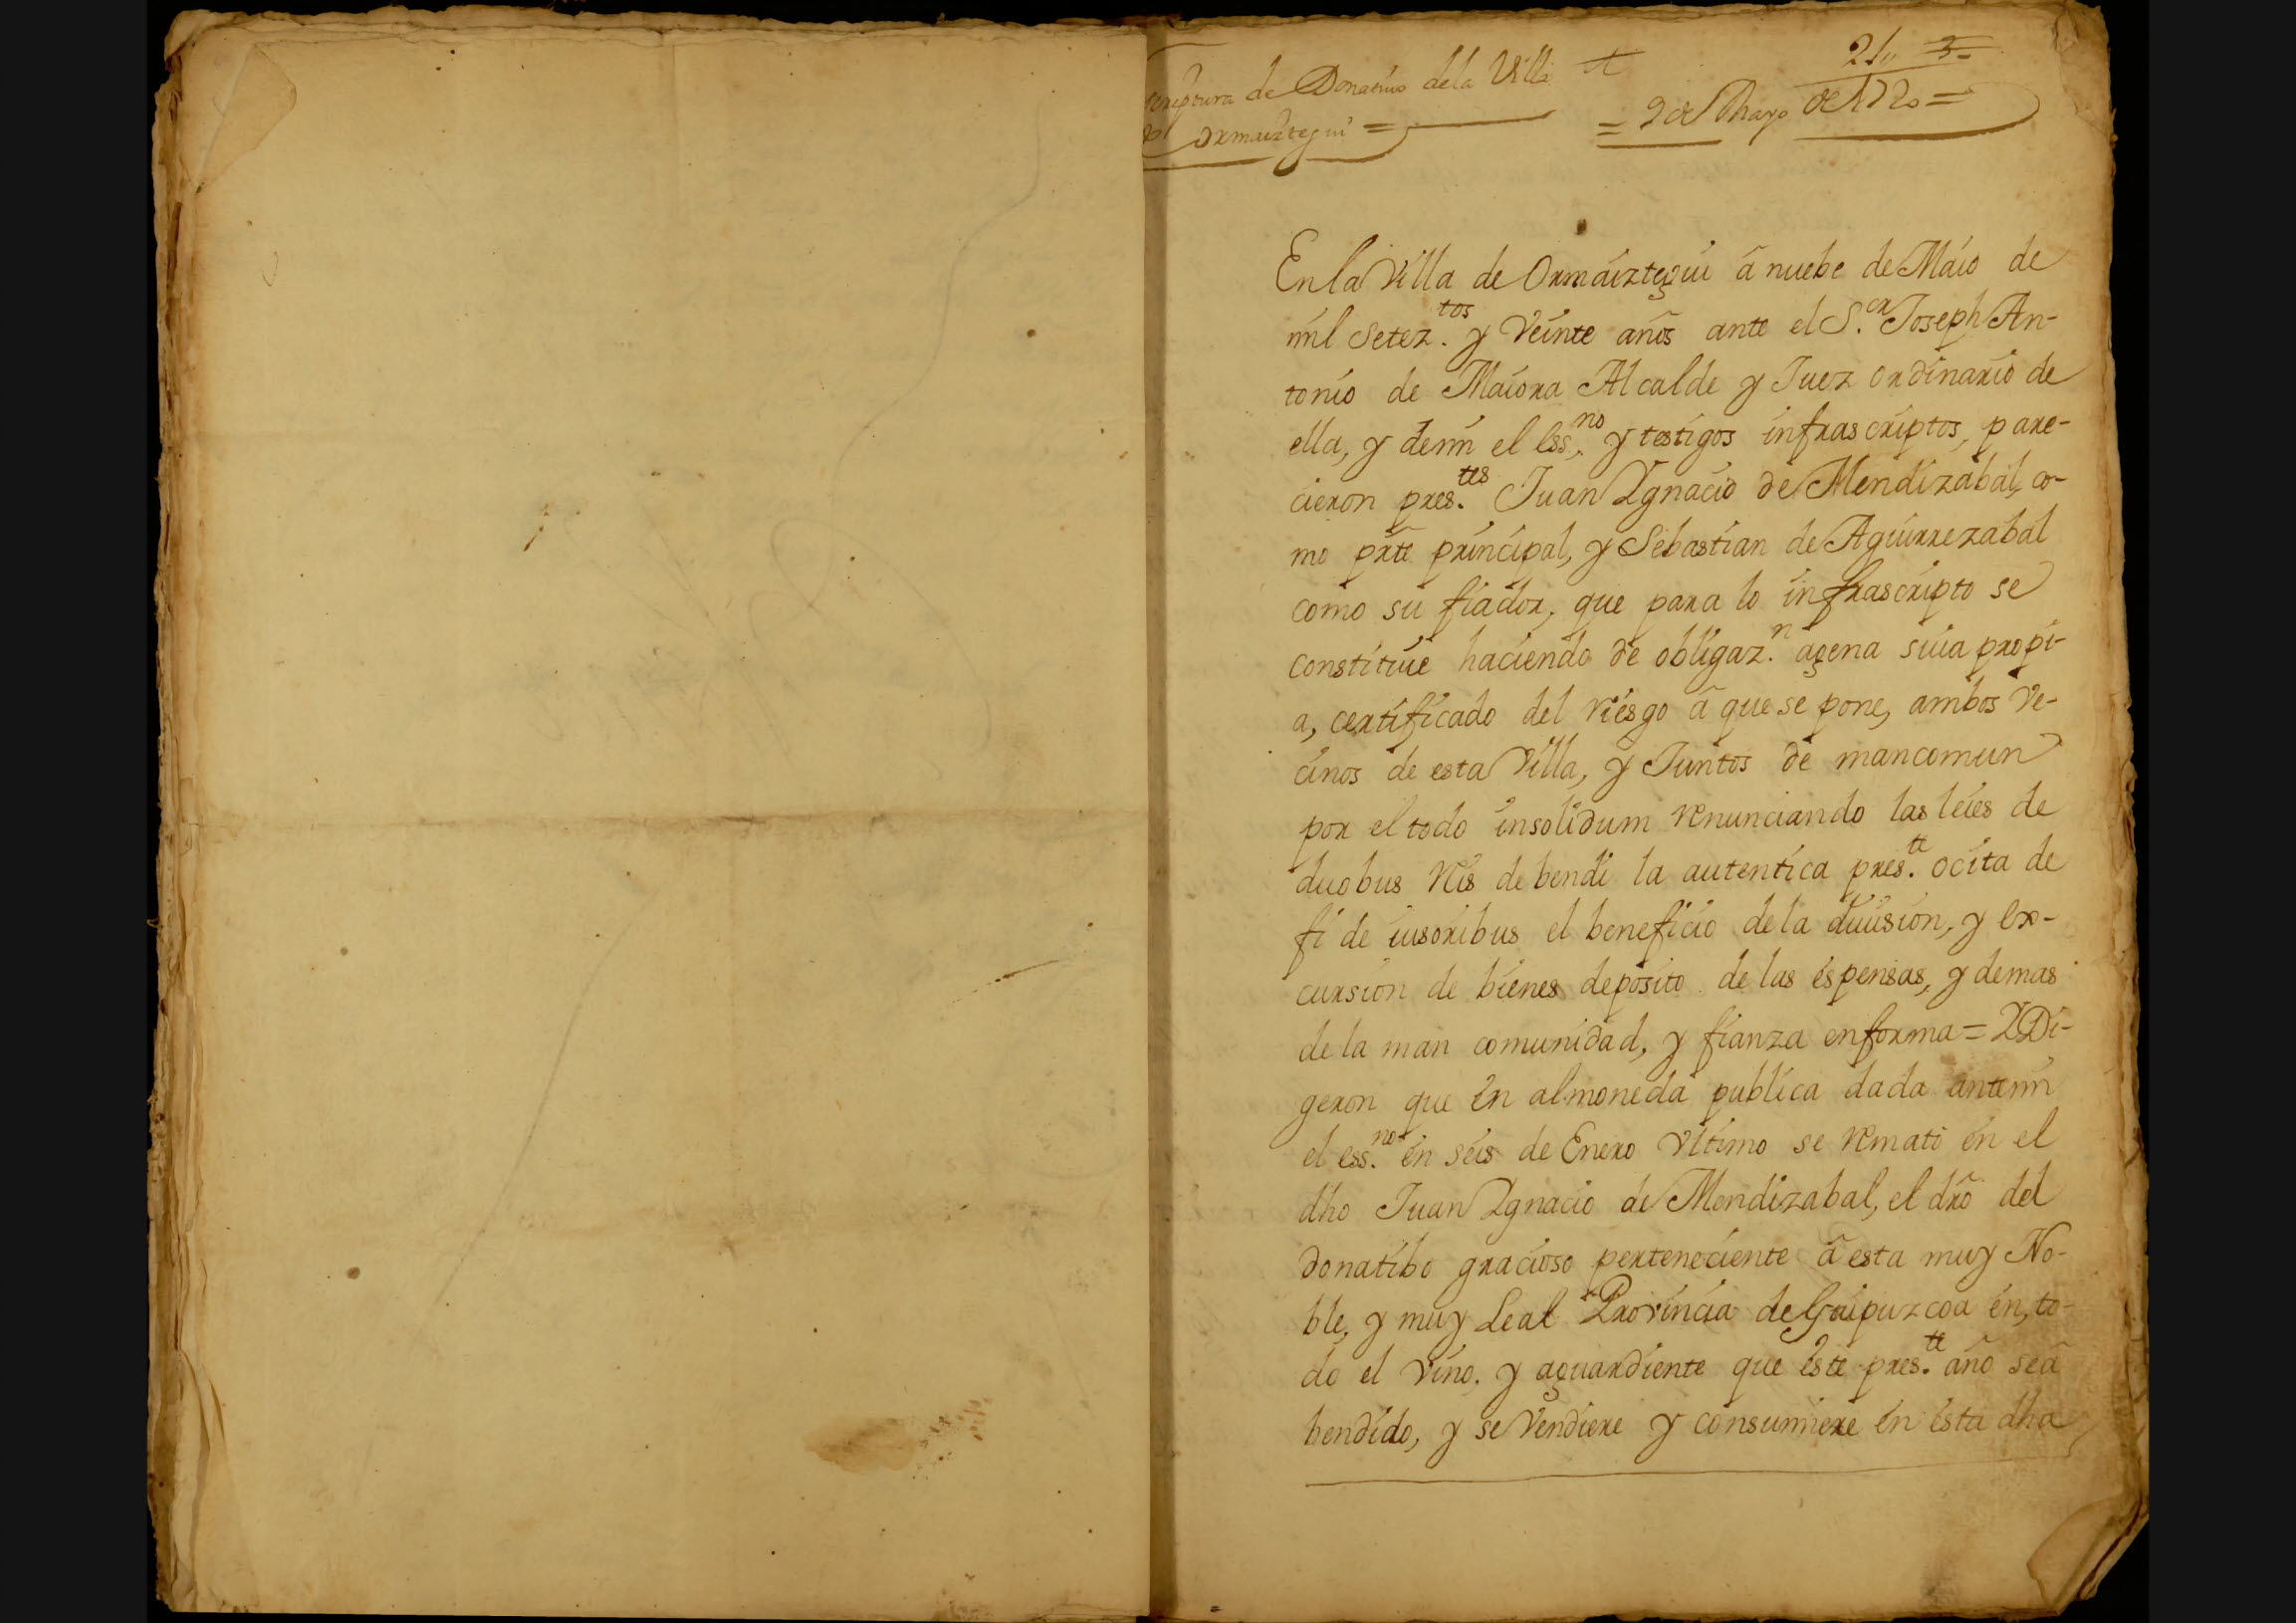 scriptura de Donatiuo dela Villa
de Ormaiztegui =
= 9 de Mayo de 1720 =
En la Villa de Ormaiztegui â nuebe de Maio de
mil setez.tos y Veinte años ante el S.or Joseph An-
tonio de Maiora Alcalde y Juez ordinario de
ella, y demi el ess.no y testigos infrascriptos, pare-
cieron pres.tes Juan Ygnacio de Mendizabal, co-
mo prte principal, y Sebastian de Aguirrezabal
como su fiador, que para lo infrascripto se
constituie haciendo de obligaz.n agena suia propi-
a, certificado del riesgo â que se pone, ambos ve-
cinos de esta Villa, y Juntos de mancomun
por el todo insolidum renunciando las leies de
duobus reis debendi la autentica pres.te ocita de
fi de iusoribus el beneficio de la diuision, y ex-
cursion de bienes deposito de las espensas, y demas
de la man comunidad, y fianza enforma = Y Di-
geron que en almoneda publica dada antemi
el ess.no en seis de Enero Vltimo se remato en el
dho Juan Ygnacio de Mendizabal, el drõ del
donatibo gracioso perteneciente â esta muy No-
ble, y muy Leal Provincia de Guipuzcoa en, to-
do el vino, y aguardiente que este pres.te año seâ
bendido, y se Vendiere y consumiere en esta dha